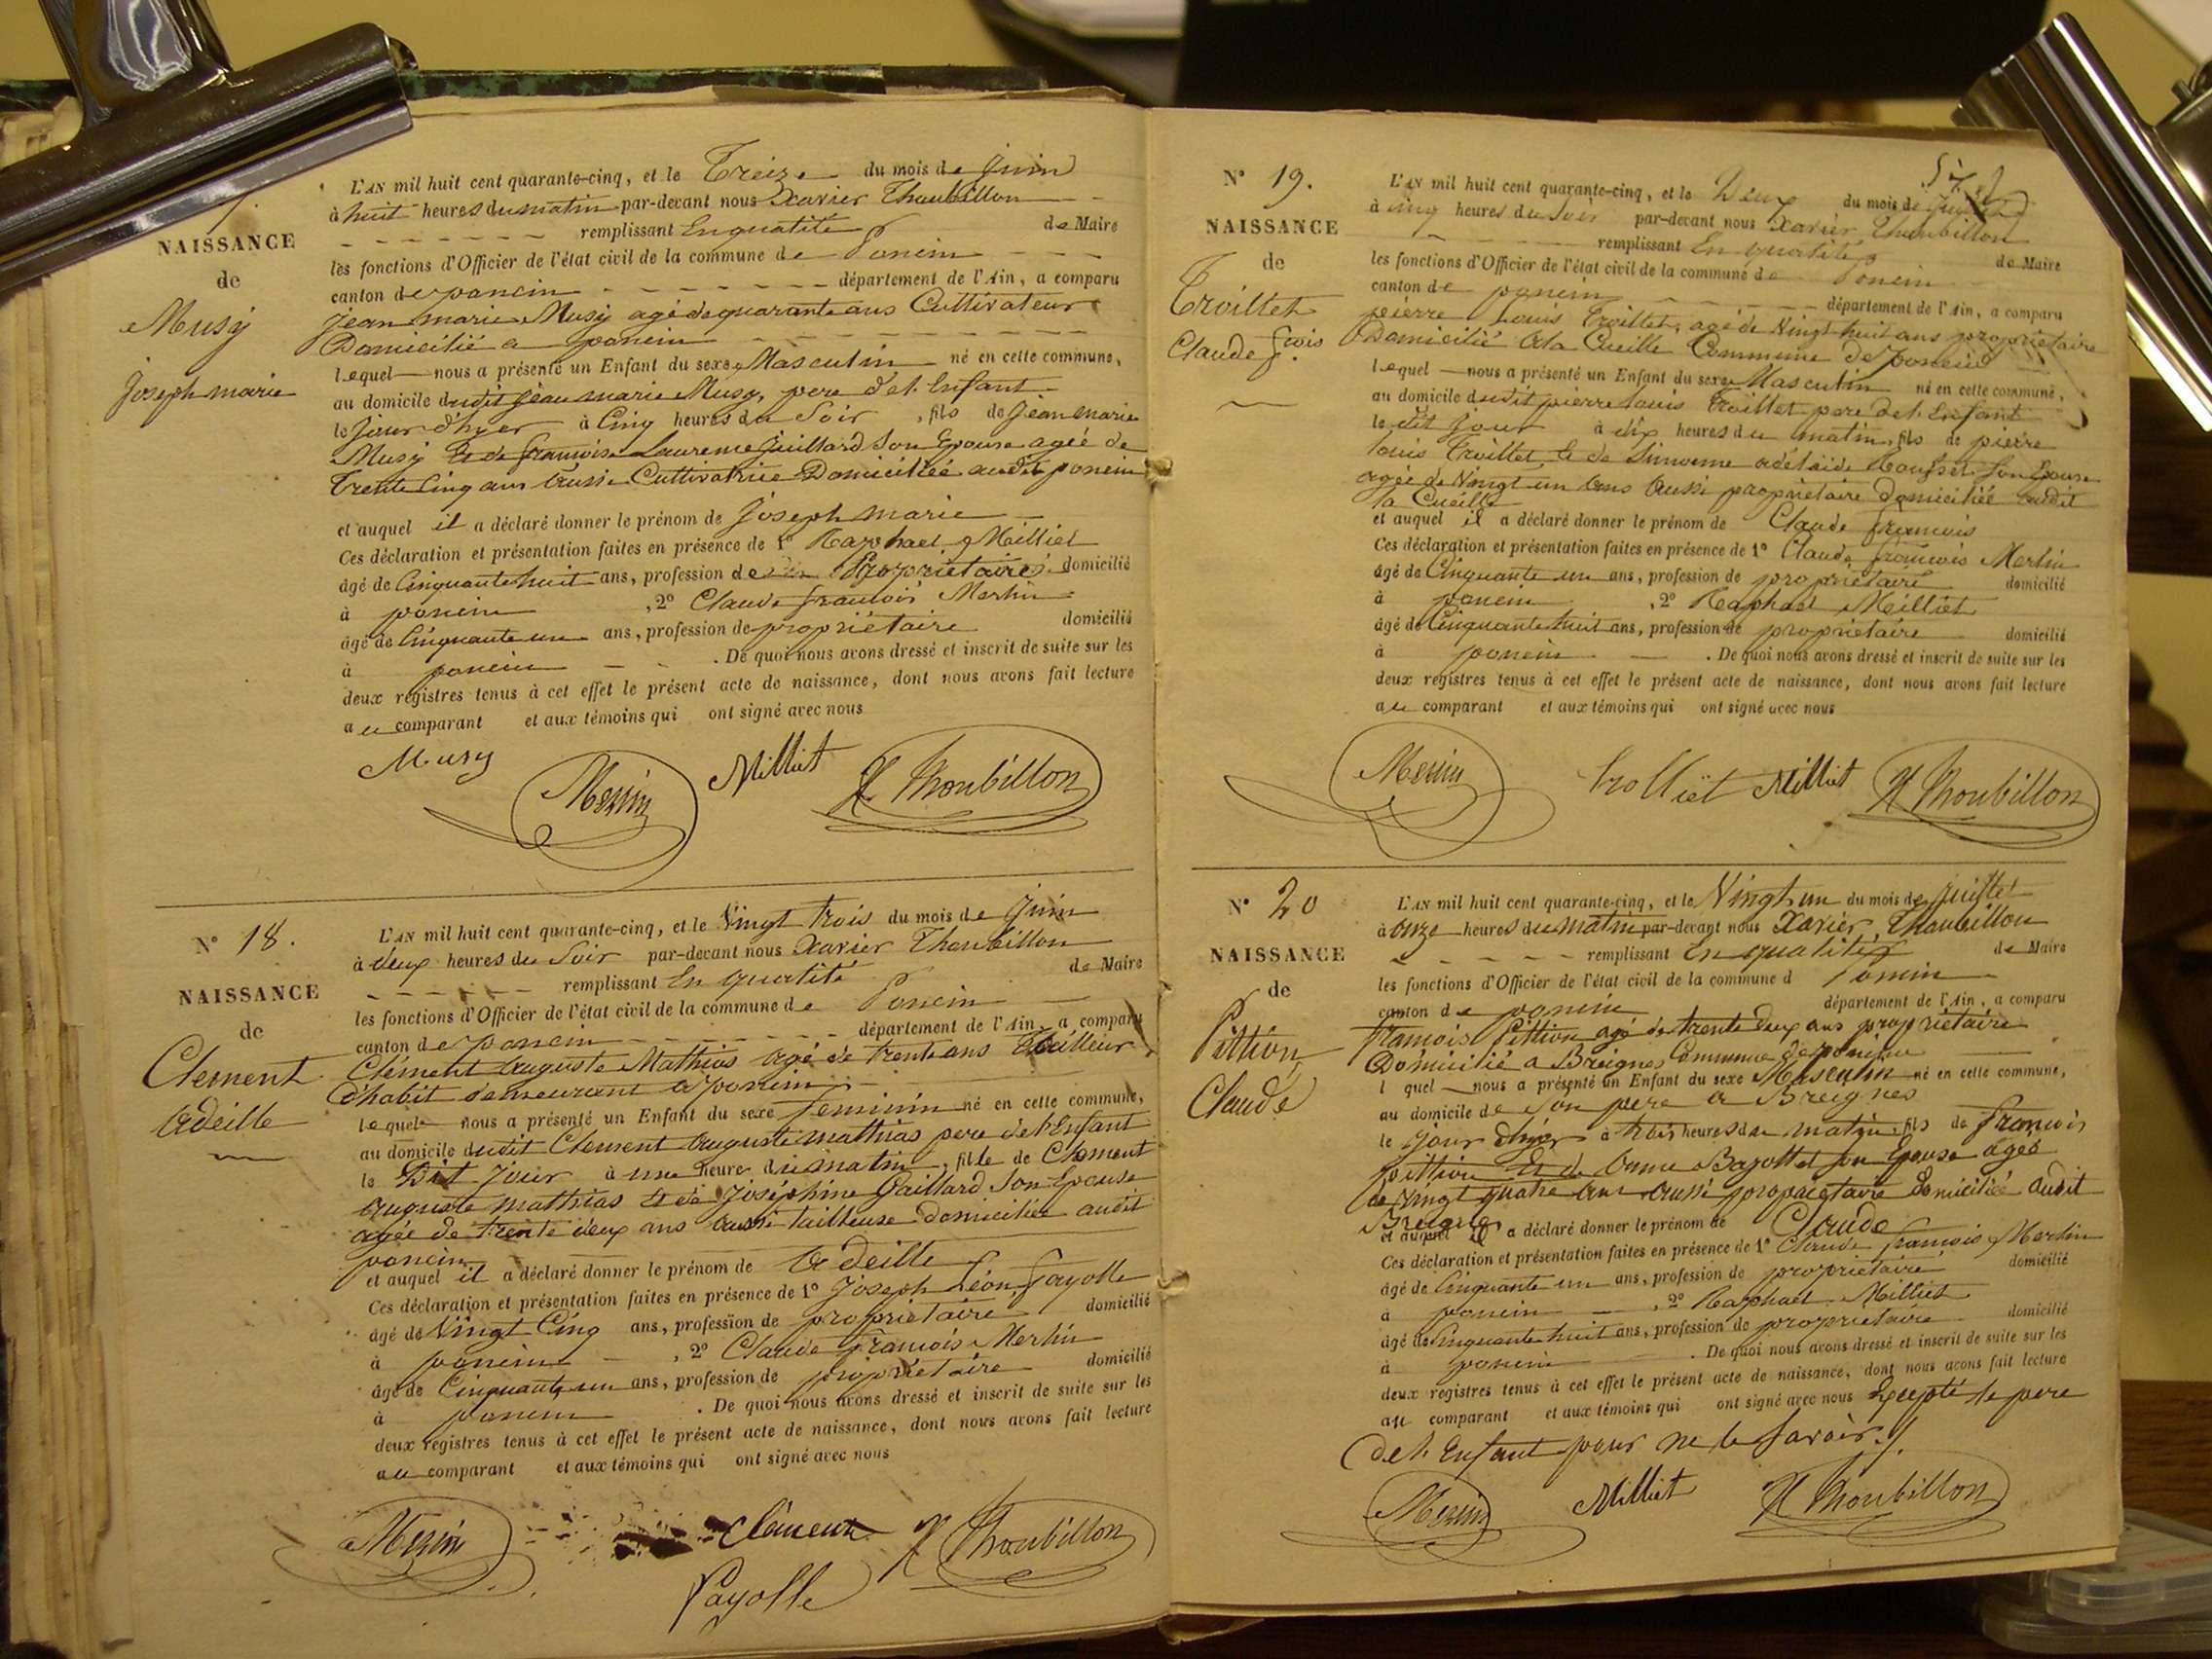 NAISSANCE
de
Musy
Joseph marie
L'AN mil huit cent quarante-cinq, et le Treize du mois de juin
à huit heures du matin par-devant nous Xavier Thoubillon
remplissant En qualité de Maire
les fonctions d'Officier de l'état civil de la commune de Poncin
canton de poncin département de l'Ain, a comparu
jean marie Musy agé de quarante ans Cultivateur
Domicilié a poncin
lequel nous a présenté un Enfant du sexe Masculin né en cette commune,
au domicile dudit jean marie Musy, pere de l'Enfant
le jour d'hyer à Cinq heures du Soir, fils de jean marie
Musy Et de francoise Laurence Guillard Son Epouse agée de
trente Cinq ans aussi Cultivatrice Domiciliée audit poncin
et auquel il a déclaré donner le prénom de joseph marie
Ces déclaration et présentation faites en présence de 1° Raphael Milliet
âgé de Cinquante huit ans, profession de Propriétaire domicilié
à poncin, 2° Claude francois Merlin
âgé de Cinquante un ans, profession de propriétaire domicilié
à poncin. De quoi nous avons dressé et inscrit de suite sur les
deux registres tenus à cet effet le présent acte de naissance, dont nous avons fait lecture
au comparant et aux témoins qui ont signé avec nous
Musy Merlin Milliet X Thoubillon
N° 18.
NAISSANCE
de
Clement
Adeille
L'AN mil huit cent quarante-cinq, et le Vingt trois du mois de juin
à deux heures du Soir par-devant nous Xavier Thoubillon
remplissant En qualité de Maire
les fonctions d'Officier de l'état civil de la commune de Poncin
canton de poncin département de l'Ain, a comparu
Clément auguste Mathias agé de trente ans tailleur
d'habit demeurant a poncin
lequel nous a présenté un Enfant du sexe feminin né en cette commune,
au domicile dudit Clement auguste mathias pere de l'Enfant
le Dit jour à une heure du matin, fille de Clement
auguste mathias Et de joséphine Gaillard Son Epouse
agée de trente deux ans aussi tailleuse domiciliée audit
poncin
et auquel il a déclaré donner le prénom de Adeille
Ces déclaration et présentation faites en présence de 1° joseph Léon fayolle
âgé de Vingt Cinq ans, profession de propriétaire domicilié
à poncin, 2° Claude francois Merlin
âgé de Cinquante un ans, profession de propriétaire domicilié
à poncin. De quoi nous avons dressé et inscrit de suite sur les
deux registres tenus à cet effet le présent acte de naissance, dont nous avons fait lecture
au comparant et aux témoins qui ont signé avec nous
Merlin Clément X Thoubillon
Fayolle
N° 19.
NAISSANCE
de
Troillet
Claude fcois
L'AN mil huit cent quarante-cinq, et le Deux du mois de
à cinq heures du Soir par-devant nous Xavier Thoubillon
remplissant En qualité de Maire
les fonctions d'Officier de l'état civil de la commune de Poncin
canton de poncin département de l'Ain, a comparu
pierre Louis Troillet, agé de Vingt huit ans propriétaire
Domicilié a la Cueille Commune de poncin
lequel nous a présenté un Enfant du sexe Masculin né en cette commune,
au domicile dudit pierre louis troillet pere de l'Enfant
le dit jour à dix heures du matin, fils de pierre
louis Troillet, Et de adélaïde Son Epouse
agée de Vingt un ans aussi propriétaire domiciliée audit
la Cueille
et auquel il a déclaré donner le prénom de Claude francois
Ces déclaration et présentation faites en présence de 1° Claude francois Merlin
âgé de Cinquante un ans, profession de propriétaire domicilié
à poncin, 2° Raphael Milliet
âgé de Cinquante huit ans, profession de propriétaire domicilié
à poncin. De quoi nous avons dressé et inscrit de suite sur les
deux registres tenus à cet effet le présent acte de naissance, dont nous avons fait lecture
au comparant et aux témoins qui ont signé avec nous
Merlin trolliet Milliet X Thoubillon
N° 20
NAISSANCE
de
Pittion
Claude
L'AN mil huit cent quarante-cinq, et le Vingt un du mois de juillet
à onze heures du matin par-devant nous Xavier Thoubillon
remplissant En qualité de Maire
les fonctions d'Officier de l'état civil de la commune d Poncin
canton de poncin département de l'Ain, a comparu
francois Pittion agé de trente deux ans propriétaire
Domicilié a Breignes Commune de poncin
l quel nous a présenté un Enfant du sexe Masculin né en cette commune,
au domicile de Son pere a Breignes
le jour d'hyer à trois heures du matin, fils de francois
pittion Et de anne Bazottet son Epouse agée
de vingt quatre ans aussi propriétaire domiciliée audit
Breignes
et auquel il a déclaré donner le prénom de Claude
Ces déclaration et présentation faites en présence de 1° Claude francois Merlin
âgé de Cinquante un ans, profession de propriétaire domicilié
à poncin, 2° Raphael Milliet
âgé de Cinquante huit ans, profession de propriétaire domicilié
à poncin. De quoi nous avons dressé et inscrit de suite sur les
deux registres tenus à cet effet le présent acte de naissance, dont nous avons fait lecture
au comparant et aux témoins qui ont signé avec nous Excepté le pere
de l'Enfant pour ne le Savoir.
Merlin Milliet X Thoubillon